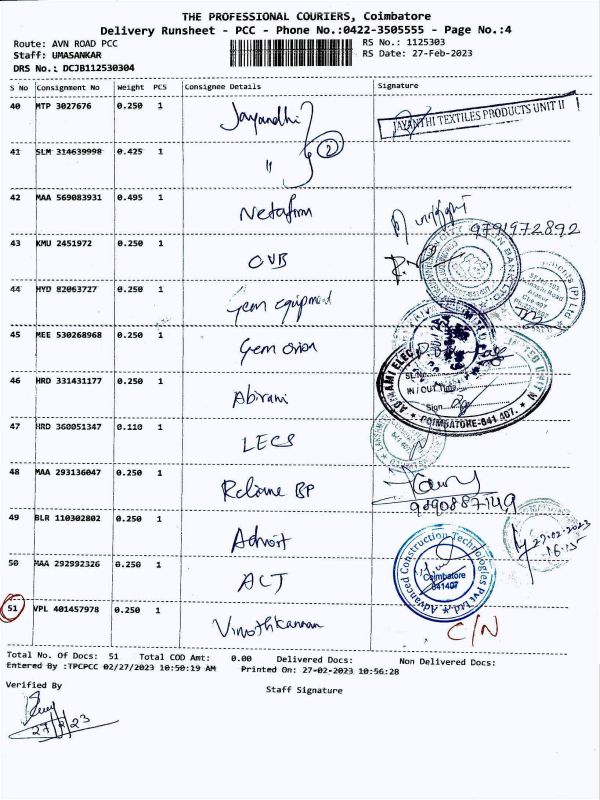 THE PROFESSIONAL COURIERS, Coimbatore
Delivery Runsheet - PCC - Phone No.:0422-3505555 - Page No.:4
Route: AVN ROAD PCC RS No.: 1125303
Staff: UMASANKAR RS Date: 27-Feb-2023
DRS No.: DCJB112530304
S No Consignment No Weight PCS Consignee Details Signature
40 MTP 3027676 0.250 1 Jayandhi JAYANTHI TEXTILES PRODUCTS UNIT II
41 SLM 314639998 0.425 1 " 2
42 MAA 569083931 0.495 1 Netafim 9791972892
43 KMU 2451972 0.250 1 CUB
44 HYD 82063727 0.250 1 Gem equipment
45 MEE 530268968 0.250 1 Gem orion
46 HRD 331431177 0.250 1 Abirami
IN / OUT Time
Sign
COIMBATORE-641 407.
47 HRD 360051347 0.110 1 LECS
48 MAA 293136047 0.250 1 Reliance BP
49 BLR 110302802 0.250 1 Advait 27-02-2023
16:15
50 MAA 292992326 0.250 1 ACT Advanced Construction Technologies Pvt Ltd.
Coimbatore
641407
51 VPL 401457978 0.250 1 Vinothkannan C/N
Total No. Of Docs: 51 Total COD Amt: 0.00 Delivered Docs: Non Delivered Docs:
Entered By :TPCPCC 02/27/2023 10:50:19 AM Printed On: 27-02-2023 10:56:28
Verified By Staff Signature
27/2/23